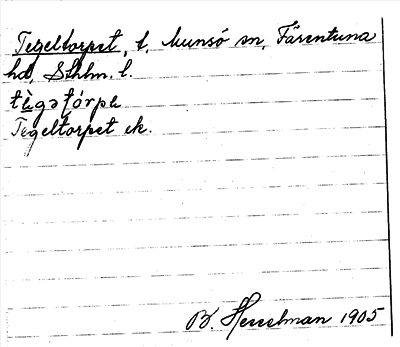 Tegeltorpet, t. Munsö sn, Färentuna
hd, Sthlm. l.
tègətórpe
Tegeltorpet ek.
B. Hesselman 1905